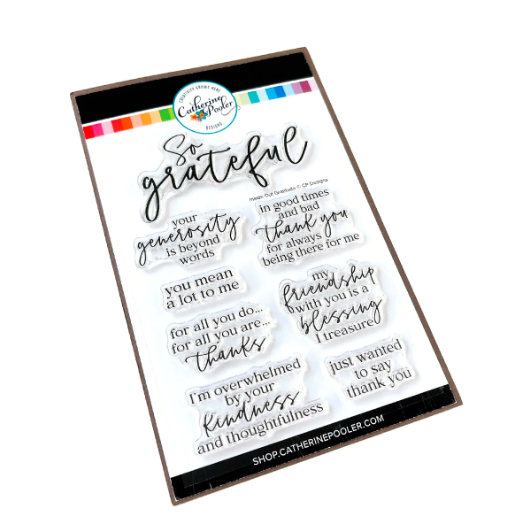 CREATIVITY GROWS HERE
Catherine
Pooler
DESIGNS
So
grateful
Gratitude © CP Designs
your
generosity
is beyond
words
in good times
and bad
thank you
for always
being there for me
you mean
a lot to me
my
friendship
with you is a
blessing
I treasure
for all you do...
for all you are...
thanks
just wanted
to say
thank you
I'm overwhelmed
by your
kindness
and thoughtfulness
SHOP.CATHERINEPOOLER.COM